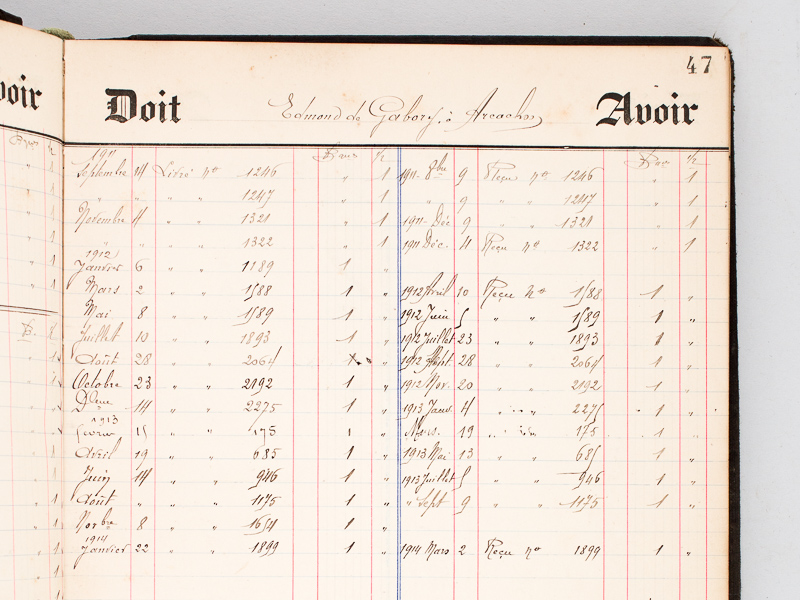 47
voir
Doit Edmond de Gabory, à Arcachon Avoir
1911
Septembre 14 Livré no 1246 " 1 1911 8bre 9 Reçu no 1246 " 1
" " " " 1247 " 1 " 9 " " 1247 " 1
Novembre 4 " " 1321 " 1 1911 Déc 9 " " 1321 " 1
" " " " 1322 " 1 1911 Déc. 11 Reçu no 1322 " 1
1912
Janvier 6 " " 1189 1 "
Mars 2 " " 1588 1 " 1912 Avril 10 Reçu no 1588 1 "
Mai 8 " " 1589 1 " 1912 Juin 5 " " 1589 1 "
Juillet 10 " " 1893 1 " 1912 Juillet 23 " " 1893 1 "
Août 28 " " 2064 " 1912 28 " " 2064 1 "
Octobre 23 " " 2192 1 " 1912 Nov. 20 " " 2192 1 "
Dbre 14 " " 2275 1 " 1913 Janv. 4 " " 2275 1 "
1913
Février 15 " " 175 1 " Mars 19 " " 175 1 "
Avril 19 " " 685 1 " 1913 Mai 13 " " 685 1 "
Juin 14 " " 946 1 " 1913 Juillet 5 " " 946 1 "
Août " " " 1175 1 " " Sept 9 " " 1175 1 "
Novbre 8 " " 1654 1 "
1914
Janvier 22 " " 1899 1 " 1914 Mars 2 Reçu no 1899 1 "